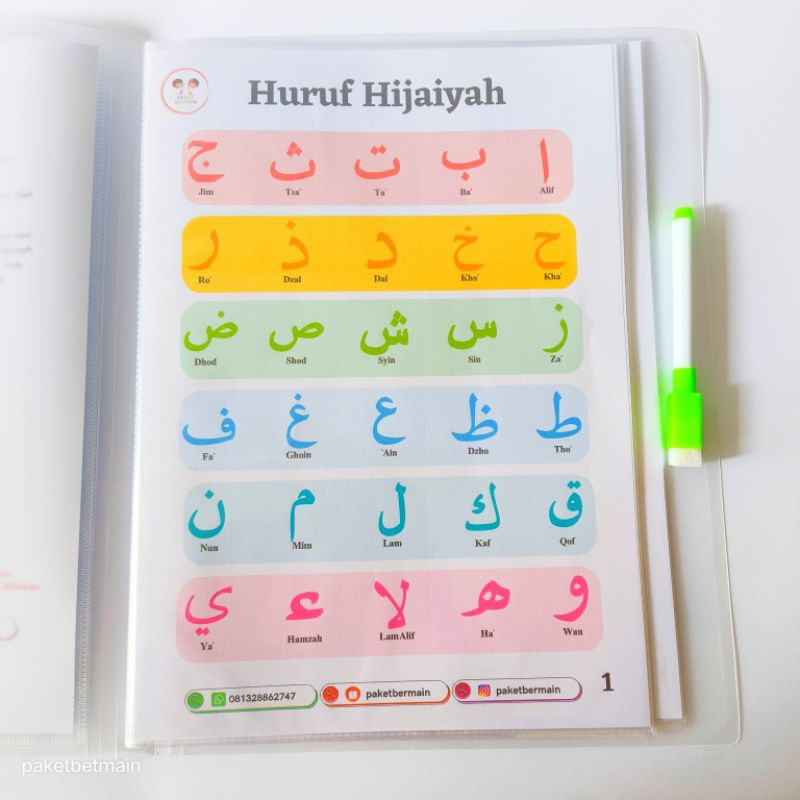 Huruf Hijaiyah
ا ب ت ث ج
Alif Ba' Ta' Tsa' Jim
ح خ د ذ ر
Kha' Kho' Dal Dzal Ro'
ز س ش ص ض
Za' Sin Syin Shod Dhod
ط ظ ع غ ف
Tho' Dzho 'Ain Ghoin Fa'
ق ك ل م ن
Qof Kaf Lam Mim Nun
و ه لا ء ي
Wau Ha' Lam Alif Hamzah Ya'
081328862747 paketbermain paketbermain
1
paketbetmain